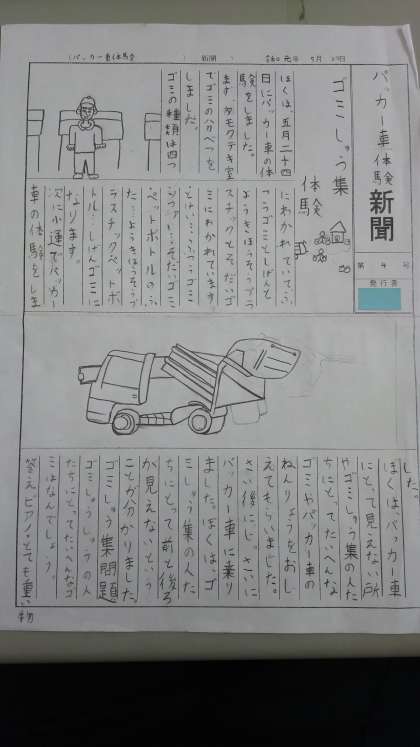 パッカー車体験
新聞
令和元年 5月
パッカー車
体験
新聞
第 4 号
発行者
ゴミしゅう集
体験
ぼくは、五月二十四
日にパッカー車の体
験をしました。
ます、タモクテキ室
でゴミのハカべつを
しました。
ゴミの種類は四つ
にわかれていて、ふ
つうゴミとしげんと
ようきほうそうプラ
スチックとそだいゴ
ミにわかれています。
ペットボトルのふ
た…ようきほうそうプ
ラスチックペットボ
トル…しげんゴミに
なります。
次に小運でパッカー
車の体験をしま
した。
ぼくは、パッカー車
にとって見えない所
やゴミしゅう集の人た
ちにとってたいへんな
ゴミやパッカー車の
ねんりょうをおし
えてもらいました。
さい後に、じっさいに
パッカー車に乗り
ました。ぼくは、ゴ
ミしゅう集の人た
ちにとって前と後ろ
が見えないという
ことが分かりました。
ゴミしゅう集問題
ゴミしゅうしゅうの人
たちにとってたいへんなゴ
ミはなんでしょう。
答えピアノ・とても重い
物